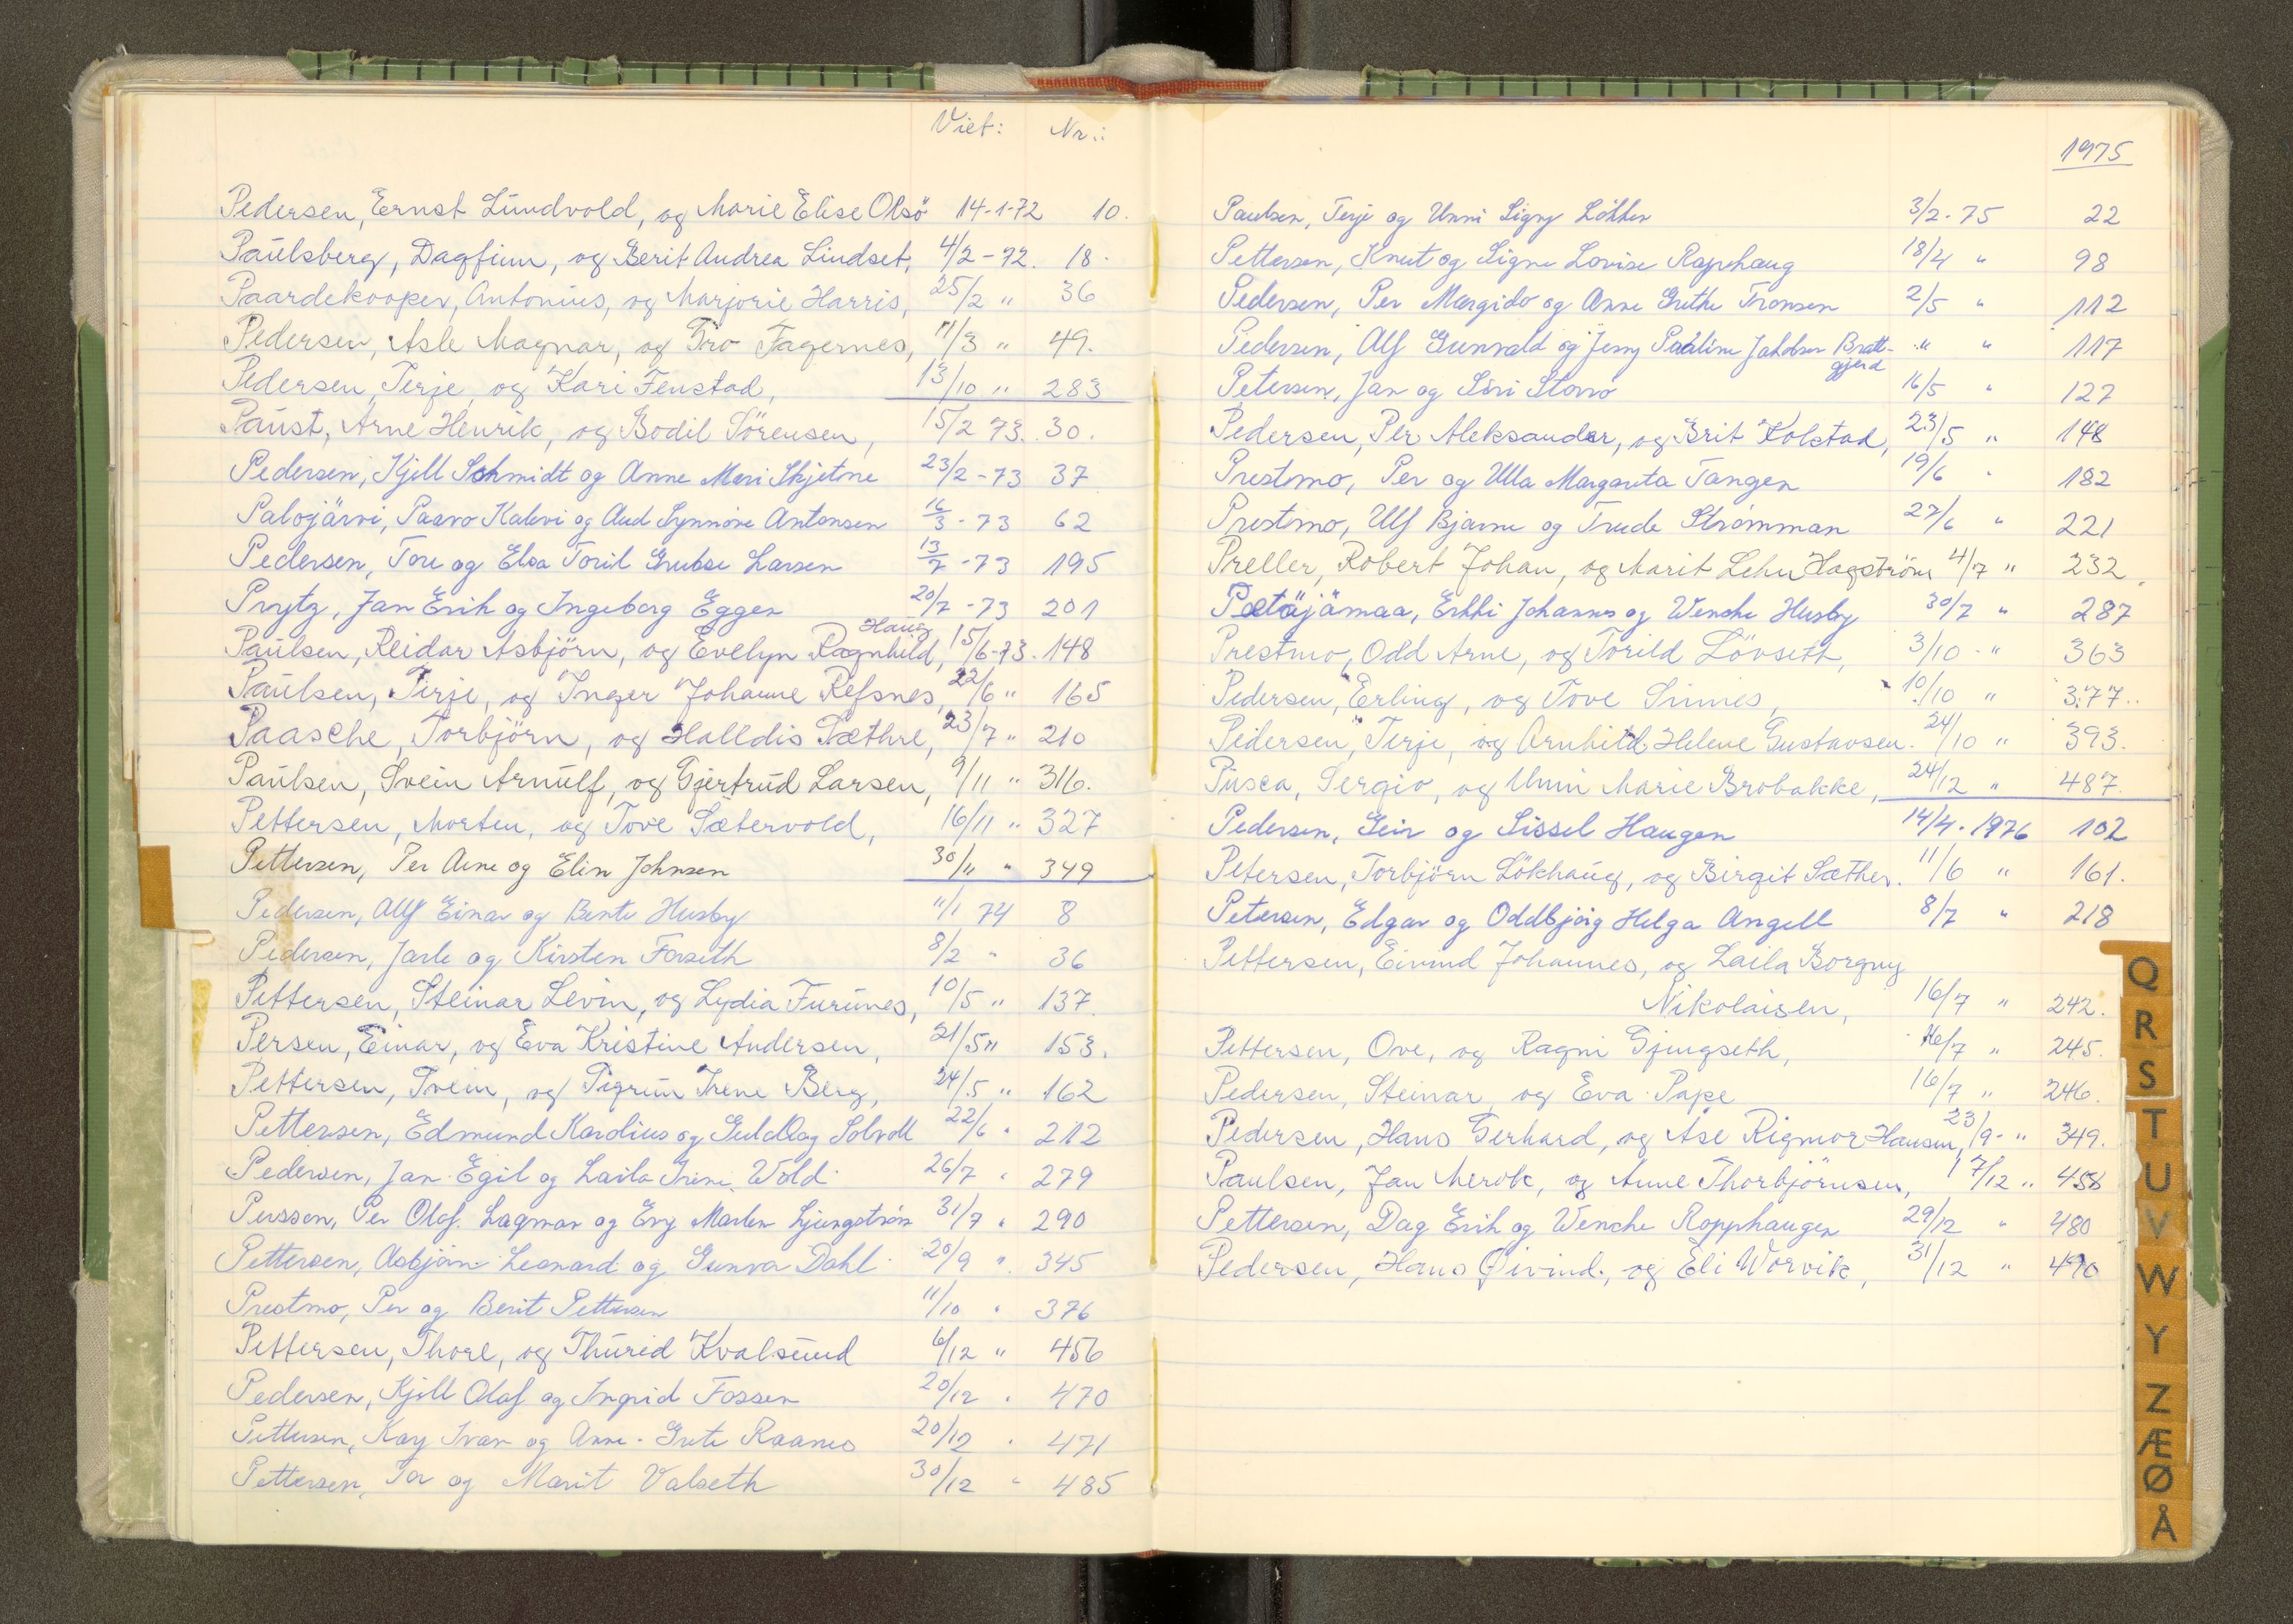 Viet: Nr.:
Pedersen, Ernst Lundvold, og Marie Elise Olsö 14-1-72 10.
Paulsberg, Dagfinn, og Berit Andrea Lindset, 4/2-72. 18.
Paardekooper, Antonius, og Marjorie Harris, 25/2 " 36
Pedersen, Asle Magnar, og Gro Fagernes, 11/3 " 49.
Pedersen, Terje, og Kari Fenstad, 13/10 " 283
Paust, Arne Henrik, og Bodil Sörensen, 15/2 73. 30.
Pedersen, Kjell Schmidt og Anne Mari Skjetne 23/2-73 37
Palojärvi, Paavo Kalevi og Aud Synnöve Antonsen 16/3-73 62
Pedersen, Tore og Elsa Toril Grubse Larsen 13/7-73 195
Prytz, Jan Erik og Ingeborg Eggen 20/7-73 201
Haug
Paulsen, Reidar Asbjörn, og Evelyn Ragnhild, 15/6-73. 148
Paulsen, Terje, og Inger Johanne Refsnes, 22/6 " 165
Paasche, Torbjörn, og Halldis Sæthre, 23/7 " 210
Paulsen, Svein Arnulf, og Gjertrud Larsen, 9/11 " 316.
Pettersen, Morten, og Tove Sætervold, 16/11 " 327
Pettersen, Per Arne og Elin Johnsen 30/11 " 349
Pedersen, Alf Einar og Bente Husby 11/1 74 8
Pedersen, Jarle og Kirsten Forseth 8/2 " 36
Pettersen, Steinar Levin, og Lydia Furunes, 10/5 " 137.
Persen, Einar, og Eva Kristine Andersen, 21/5 " 153.
Pettersen, Svein, og Sigrun Irene Berg, 24/5 " 162
Pettersen, Edmund Karolius og Guldlog Solvoll 22/6 " 212
Pedersen, Jan Egil og Laila Irene Wold 26/7 " 279
Persson, Per Olof Lagman og Evy Marlen Ljungström 31/7 " 290
Pettersen, Asbjörn Leonard og Gunvor Dahl 20/9 " 345
Prestmo, Per og Berit Pettersen 11/10 " 376
Pettersen, Thore, og Thurid Kvalsund 6/12 " 456
Pedersen, Kjell Olaf og Ingrid Fossen 20/12 " 470
Pettersen, Kay Ivar og Anne-Grete Raanes 20/12 " 471
Pettersen, Tor og Marit Valseth 30/12 " 485
1975
Paulsen, Terje og Unni Signy Løkken 3/2-75 22
Pettersen, Knut og Signe Lovise Rapphaug 18/4 " 98
Pedersen, Per Margido og Anne Grethe Tronsen 2/5 " 112
Pedersen, Alf Gunvald og Jenny Pauline Jakobsen Bratt- " " 117
gjerd
Petersen, Jan og Siri Storrø 16/5 " 127
Pedersen, Per Aleksander, og Brit Kolstad, 23/5 " 148
Prestmo, Per og Ulla Margareta Tangen 19/6 " 182
Prestmo, Ulf Bjarne og Trude Strömman 27/6 " 221
Preller, Robert Johan, og Marit Lehn Hagström 4/7 " 232.
Petäjämaa, Erkki Johannes og Wenche Husby 30/7 " 287
Prestmo, Odd Arne, og Torild Lövseth, 3/10 - " 363
Pedersen, Erling, og Tove Sinnes, 10/10 " 377.
Pedersen, Terje, og Arnhild Helene Gustavsen. 24/10 " 393.
Pusca, Sergio, og Unni Marie Brobakke, 24/12 " 487.
Pedersen, Geir og Sissel Haugen 14/4-1976 102
Petersen, Torbjörn Lökhaug, og Birgit Sæther. 11/6 " 161.
Petersen, Edgar og Oddbjörg Helga Angell 8/7 " 218
Pettersen, Eivind Johannes, og Laila Borgny
Nikolaisen, 16/7 " 242.
Pettersen, Ove, og Ragni Gjengseth, 16/7 " 245.
Pedersen, Steinar, og Eva Pape 16/7 " 246.
Pedersen, Hans Gerhard, og Åse Rigmor Hansen, 23/9- " 349.
Paulsen, Jan Merok, og Anne Thorbjörnsen, 17/12 " 458
Pettersen, Dag Erik og Wenche Ropphaugen 29/12 " 480
Pedersen, Hans Øivind, og Eli Worvik, 31/12 " 490
Q
R
S
T
U
V
W
Y
Z
Æ
Ø
Å